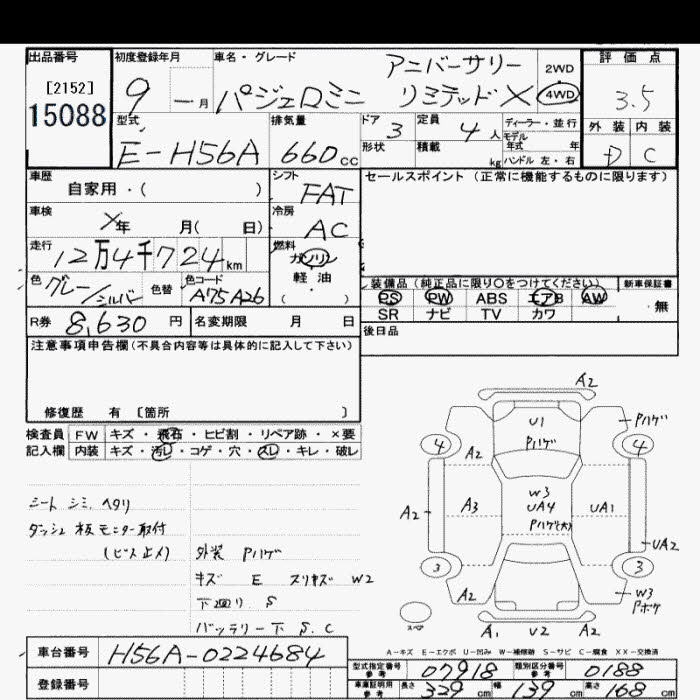 出品番号
[2152]
15088
初度登録年月
9 ー 月
車名・グレード
アニバーサリー
パジェロミニ リミテッド X
2WD
4WD
評価点
3.5
外装 内装
D C
型式
E-H56A
排気量
660cc
ドア 3
形状
定員 4 人
積載 kg
ディーラー・並行
モデル
年式 年
ハンドル 左・右
車歴
自家用・( )
シフト
FAT
セールスポイント（正常に機能するものに限ります）
車検
X年 月( 日)
冷房
AC
走行
12万4千724km
燃料
ガソリン
軽・油
( ・ )
色 グレー/シルバー 色替
色コード
A75 A26
装備品（純正品に限り○をつけてください）
PS PW ABS エアB AW
SR ナビ TV カワ
新車保証書
・無
R券 8,630 円
名変期限 月 日
後日品
注意事項申告欄(不具合内容等は具体的に記入して下さい)
修復歴 有 [箇所 ]
検査員
記入欄
FW キズ・飛石・ヒビ割・リペア跡・×要
内装 キズ・汚レ・コゲ・穴・スレ・キレ・破レ
シート シミ、ヘタリ
ダッシュ板モニター取付
(ビス止メ)
外装 Pハゲ
キズ E スリキズ W2
下回リ S
バッテリー下 S.C
A2
U1
Pハゲ
Pハゲ
4
4
A2
A2
A2
A3
W3
UA4
Pハゲ(大)
UA1
UA2
3
3
A2
W3
Pボケ
スペア
A1 U2 A2
A-キズ E-エクボ U-凹み W-補修跡 S-サビ C-腐食 XX-交換済
車台番号 H56A-0224684
登録番号
型式指定番号
参考
07918
類別区分番号
参考
0188
車庫証明用
参考
長さ 329 cm 幅 139 cm 高さ 168 cm